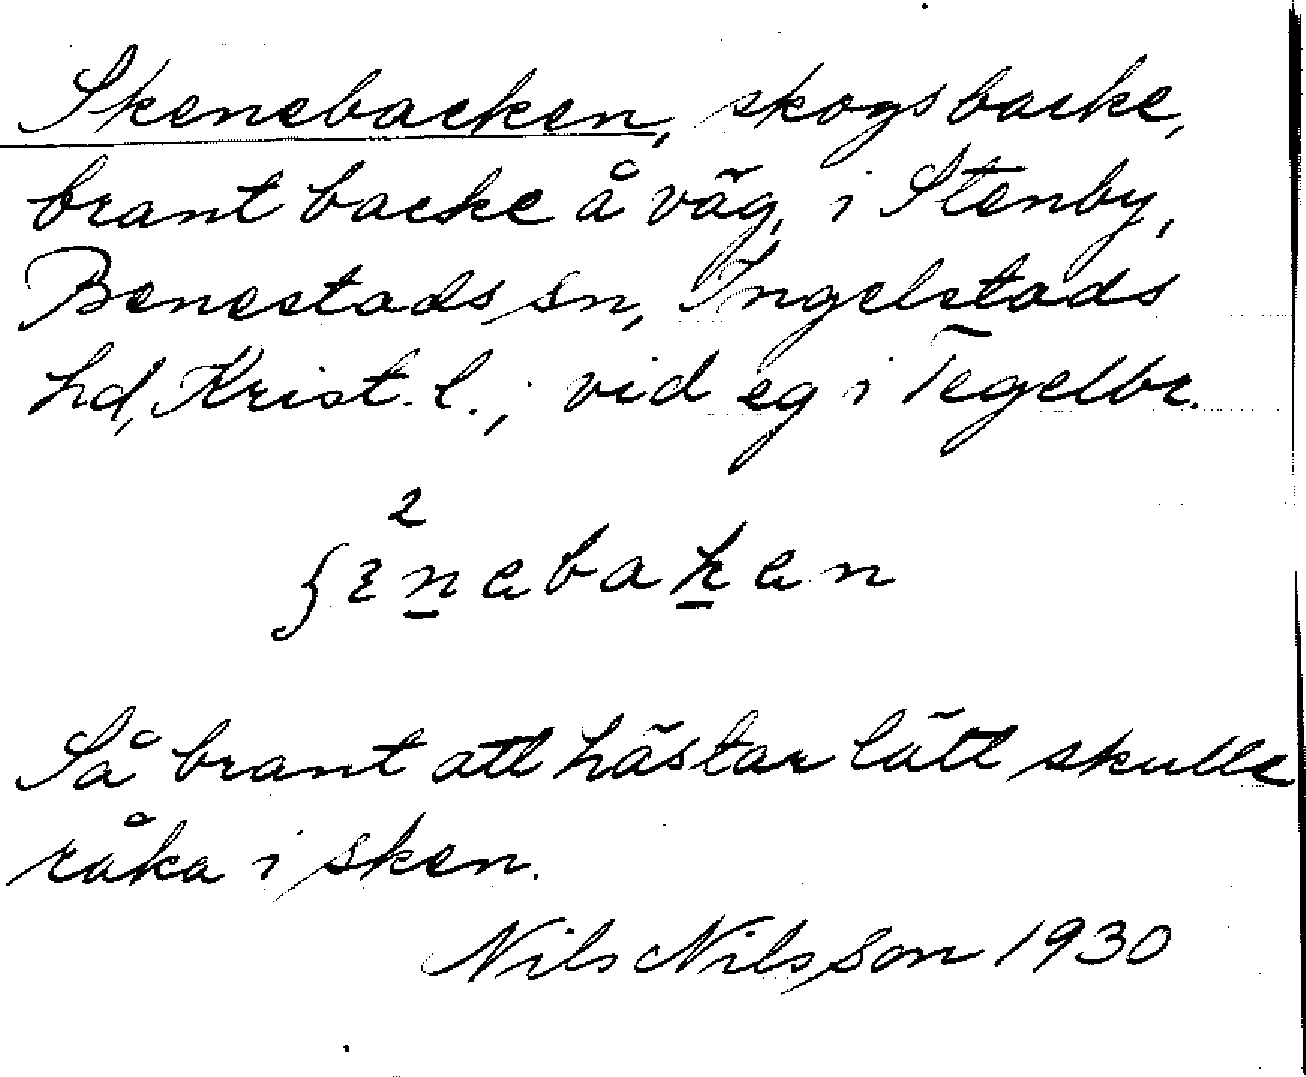 Skenebacken, skogsbacke,
brant backe å väg, i Stenby,
Benestads sn, Ingelstads
hd, Krist. l.; vid eg i Tegelbr.
2
Så brant att hästar lätt skulle
råka i sken.
Nils Nilsson 1930